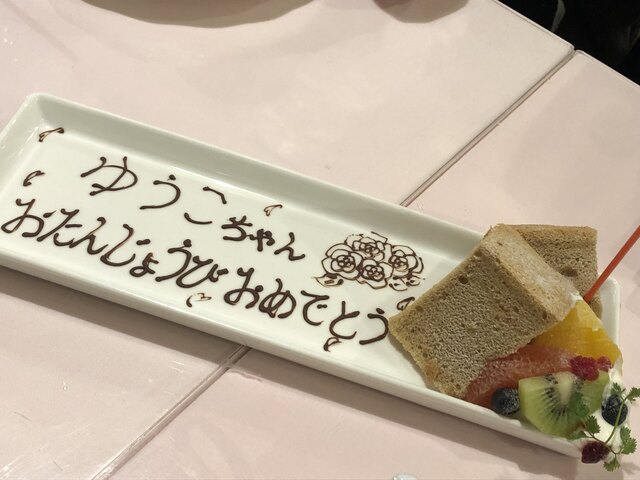 ゆうこちゃん
おたんじょうびおめでとう